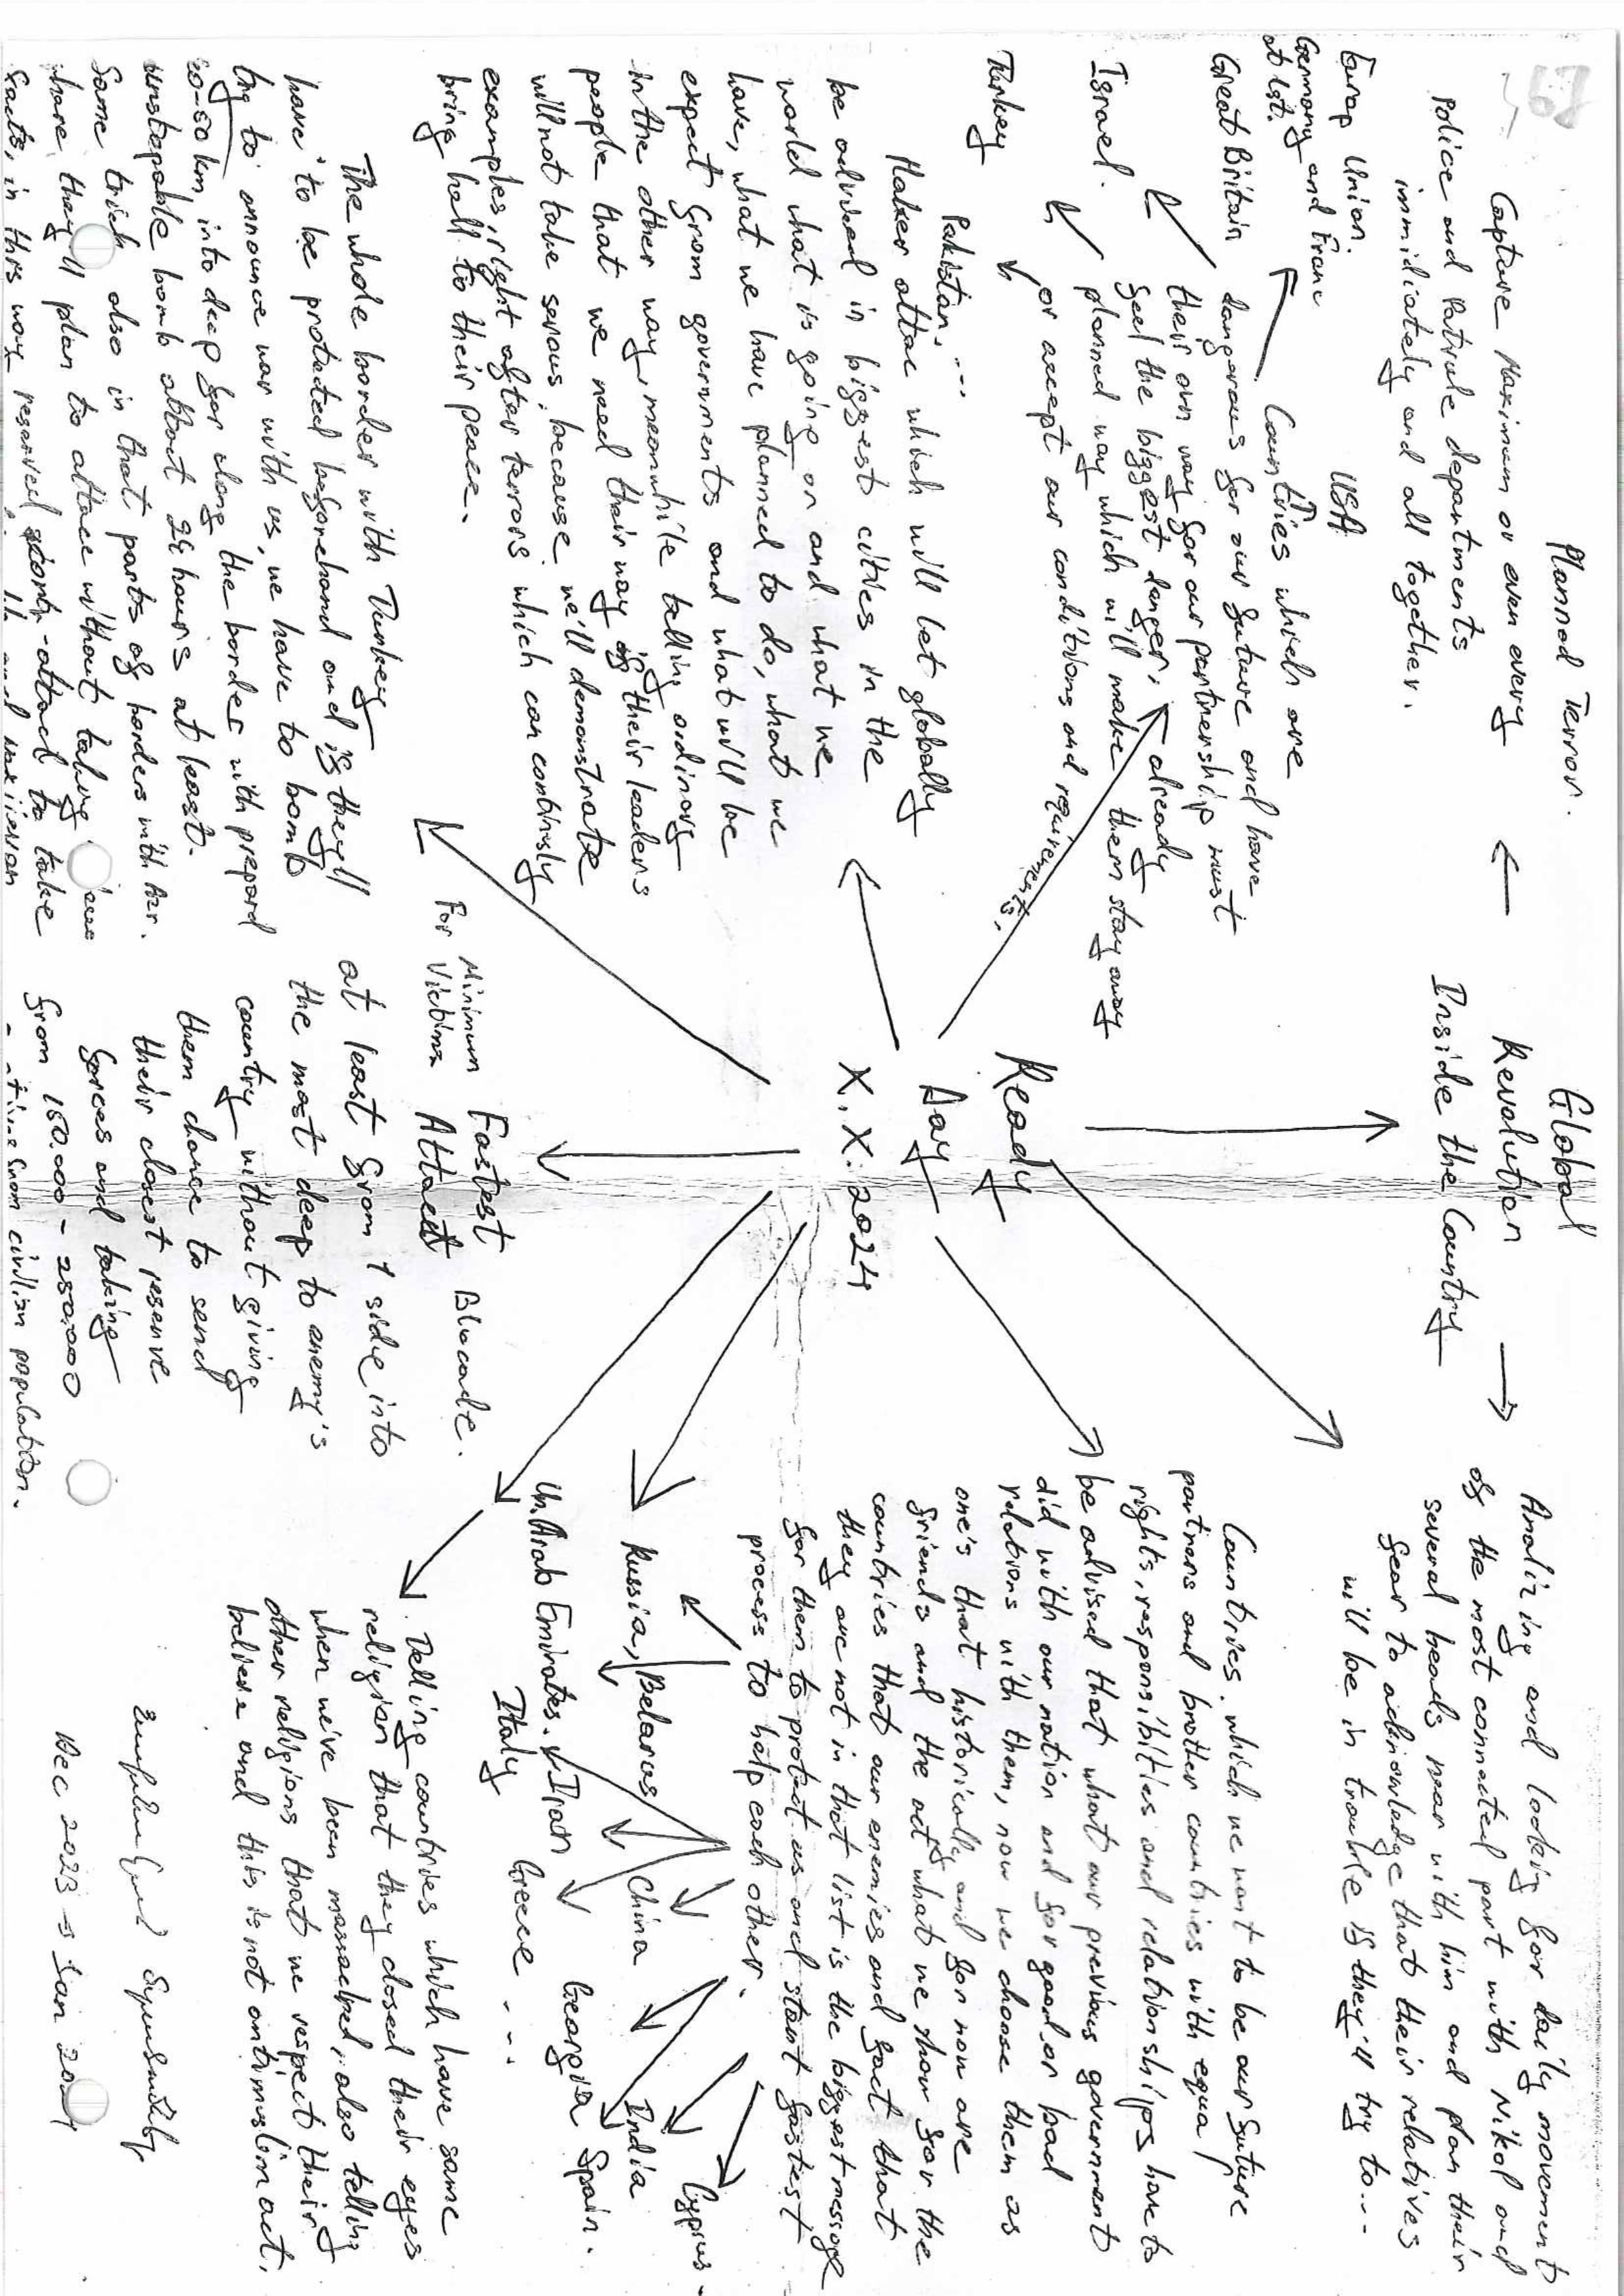 Planned Terror.
Capture Maximum or even every
Police and Patrule departments
immidiately and all together.
←
Global
Revalution
Inside the Country
→
Analizing and looking for daily movement
of the most connected part with Nikol and
several heads near with him and plan their
fear to acknowledge that their relatives
will be in trouble if they'll try to...
USA
Europ Union.
Germany and Franc
at lst.
Great Britain
Israel.
Turkey
Pakistan, ...
Countries which are
dangerous for our future and have
their own way for our partnership must
feel the biggest danger, already
planned way which will make them stay away
or accept our conditions and requirements.
Ready
Day
X.X.2024
Countries which we want to be our future
partners and brother countries with equal
rights, responsibilties and relationships have to
be advised that what our previous government
did with our nation and for good or bad
relations with them, now we choose them as
one's that historically and for now are
friends and the act what we show for the
countries that our enemies and fact that
they are not in that list is the biggest message
for them to protect us and start fastest
process to help each other.
Maker attac which will let globally
be adviced in biggest cities in the
world what is going on and what we
have, what we have planned to do, what we
expect from governments and what will be
in the other way, meanwhile telling ordinary
people that we need their way if their leaders
will not take serious, because we'll demonstrate
examples, right after terrors which can continusly
bring hall to their peace.
Russia, Belarus China India Cyprus.
Un. Arab Emirates. Iran Georgia Spain.
Italy Greece ...
The whole border with Turkey
have to be protected beforehand and if they'll
try to announce war with us, we have to bomb
20-50 km, into deep for along the border with prepard
unstopable bomb attout 24 hours at least.
Same trick also in that parts of borders with Azr.
where they'll plan to attace without taking
facts, in this way reserved story-attack to take
Minimum
For Victims
Fastest
Attact
Blocade.
at least from 1 side into
the most deep to enemy's
country without giving
them chance to send
their closest reserve
forces and taking
from 150.000 - 250.000
civilian population.
Telling countries which have same
religion that they closed their eyes
when we've been massacred, also telling
other religions that we respect their
believe and this is not antimuslim act.
Dec 2023 → Jan 2024